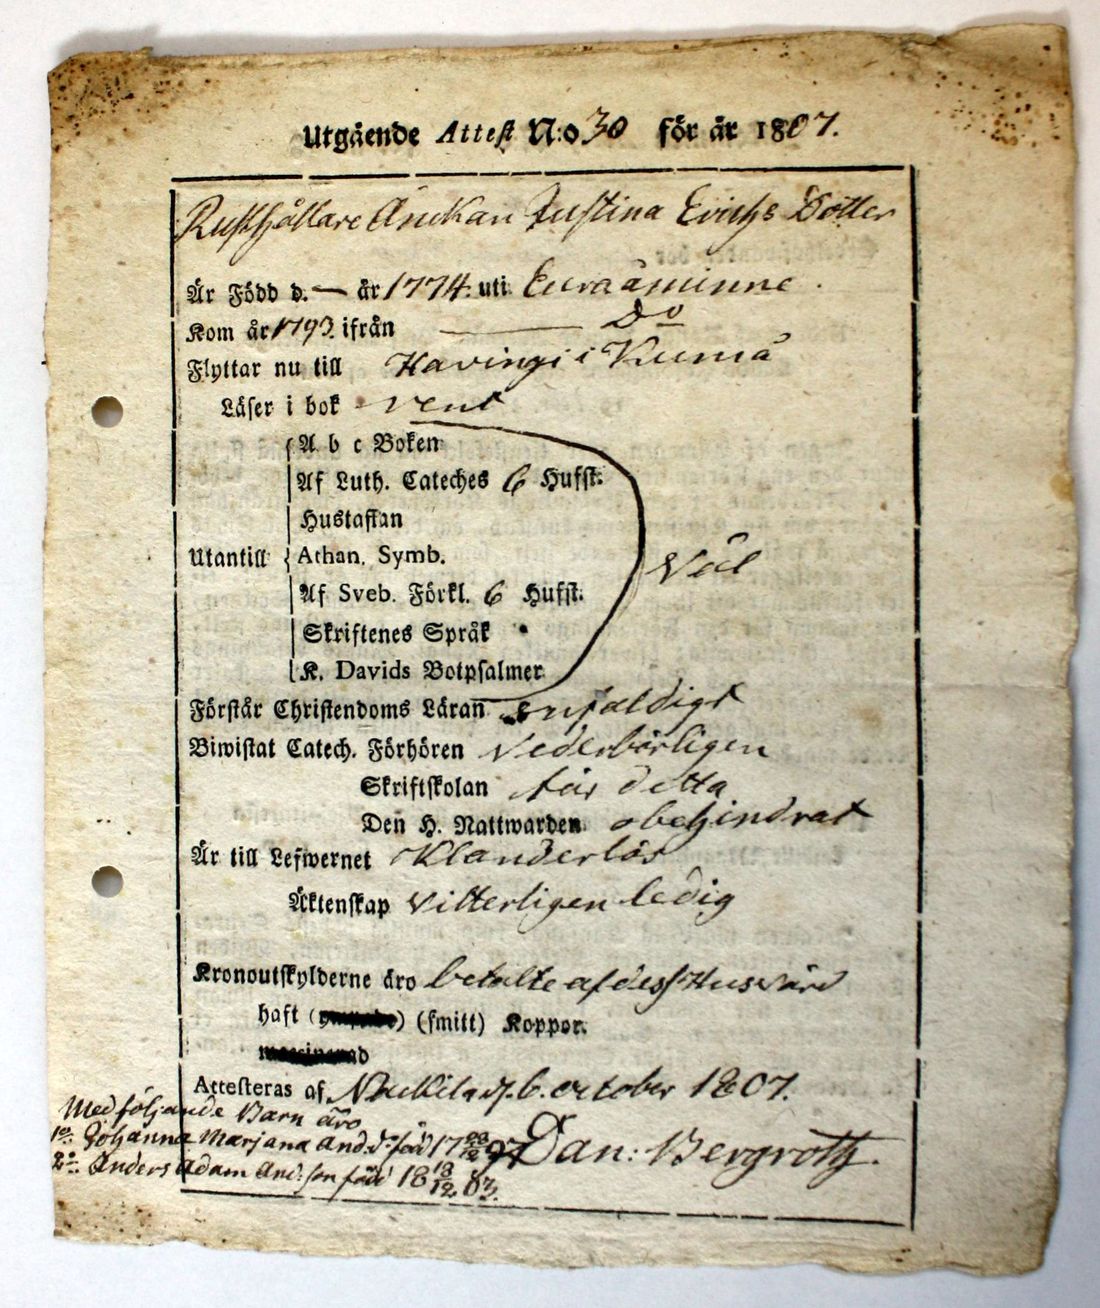 Utgående Attest N:o 30 för år 1807.
Rusthållare Änckan Justina Erichs Dotter
Är Född d. — år 1774. uti Euraåminne.
Kom år 1793. ifrån — Do
Flyttar nu till Havingi i Kumå
Läser i bok rent
A b c Boken
Af Luth. Cateches 6 Hufst.
Hustaflan
Utantill Athan. Symb. Väl
Af Sveb. Förkl. 6 Hufst.
Skriftenes Språk
K. Davids Botpsalmer
Förstår Christendoms Läran enfaldigt
Biwistat Catech. Förhören Vederbörligen
Skriftskolan för detta
Den H. Nattwarden obehindrat
Är till Lefwernet Klanderlös
Äktenskap Vitterligen ledig
Kronoutskylderne äro betalte af dess Husvärd
haft () (smitt) Koppor.
Attesteras af d. 6. october 1807.
Medföljande Barn äro
1o: Johanna Marjana And:dr född 17 97 Dan: Bergroth.
2o: Anders Adam And:son född 18 18/12 03.